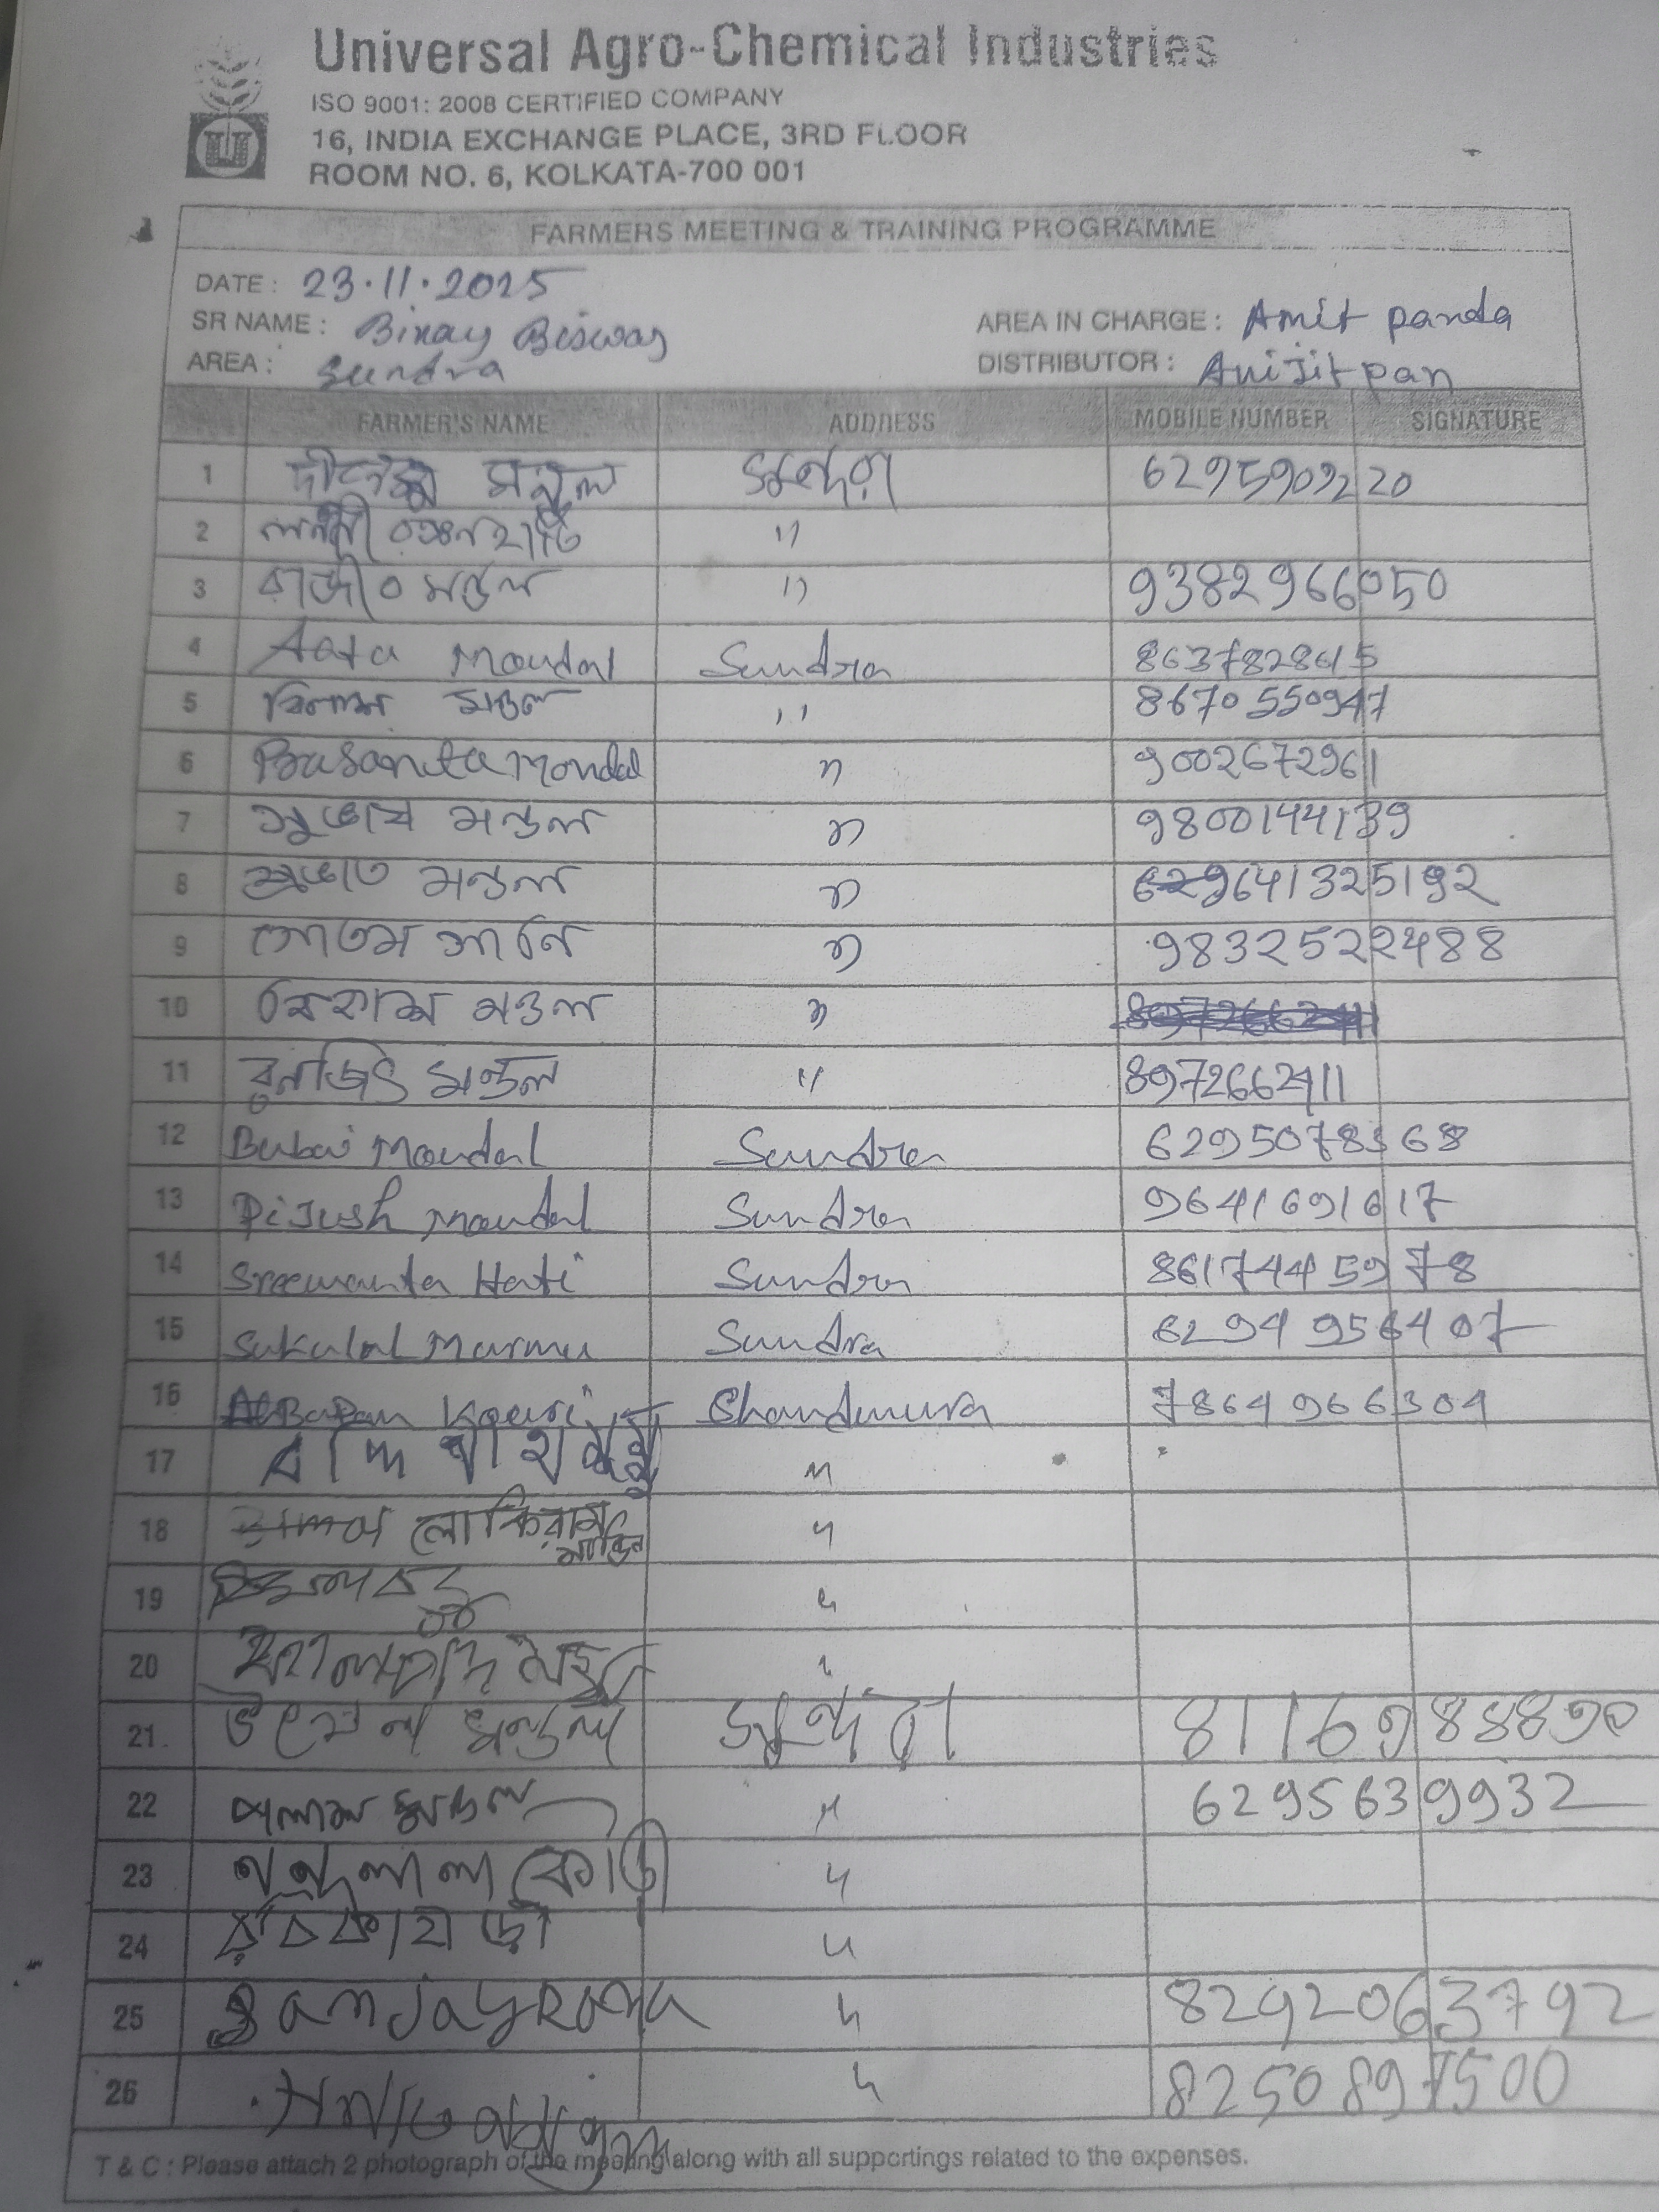 Universal Agro-Chemical Industries
ISO 9001: 2008 CERTIFIED COMPANY
16, INDIA EXCHANGE PLACE, 3RD FLOOR
ROOM NO. 6, KOLKATA-700 001
FARMERS MEETING & TRAINING PROGRAMME
DATE : 23.11.2025
SR NAME : Binay Biswas
AREA IN CHARGE : Amit panda
AREA : Sundra
DISTRIBUTOR : Avijit pan
FARMER'S NAME ADDRESS MOBILE NUMBER SIGNATURE
1 মন্ডল সুন্দরা 6295909220
2 লক্ষ্মী হাটি "
3 রাজীব মন্ডল " 9382966050
4 Mondal Sundra 8637828615
5 বিকাশ মণ্ডল " 8670550947
6 Prasanta Mondal " 9002672961
7 সুভাষ মন্ডল " 9800144139
8 প্রভাত মন্ডল " 9641325192
9 গৌতম " 98325222488
10 বিকাশ মণ্ডল "
11 রনজিৎ মন্ডল " 8972662411
12 Bubai Mondal Sundra 6295078368
13 Pijush Mondal Sundra 9641691617
14 Sreemanta Hati Sundra 8617445978
15 Sukulal Murmu Sundra 6294956407
16 Bapan Koeri 7864966304
17 "
18 লোকিরাম মান্ডি "
19 "
20 "
21. মন্ডল সুন্দরা 8116988890
22 পলাশ মন্ডল " 6295639932
23 নন্দলাল কোড়া "
24 "
25 Sanjay Rana " 8292063792
26 " 8250897500
T & C : Please attach 2 photograph of the meeting along with all supportings related to the expenses.